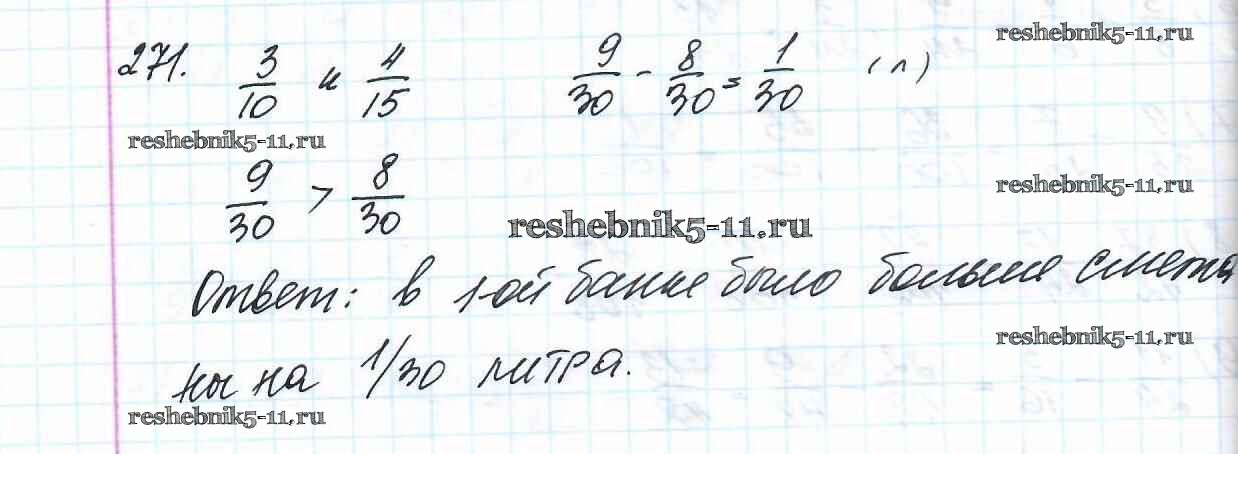 reshebnik5-11.ru
271. 3/10 и 4/15 9/30 - 8/30 = 1/30 (л)
reshebnik5-11.ru
9/30 > 8/30
reshebnik5-11.ru
reshebnik5-11.ru
Ответ: в 1-ой банке было больше смета
ны на 1/30 литра.
reshebnik5-11.ru
reshebnik5-11.ru